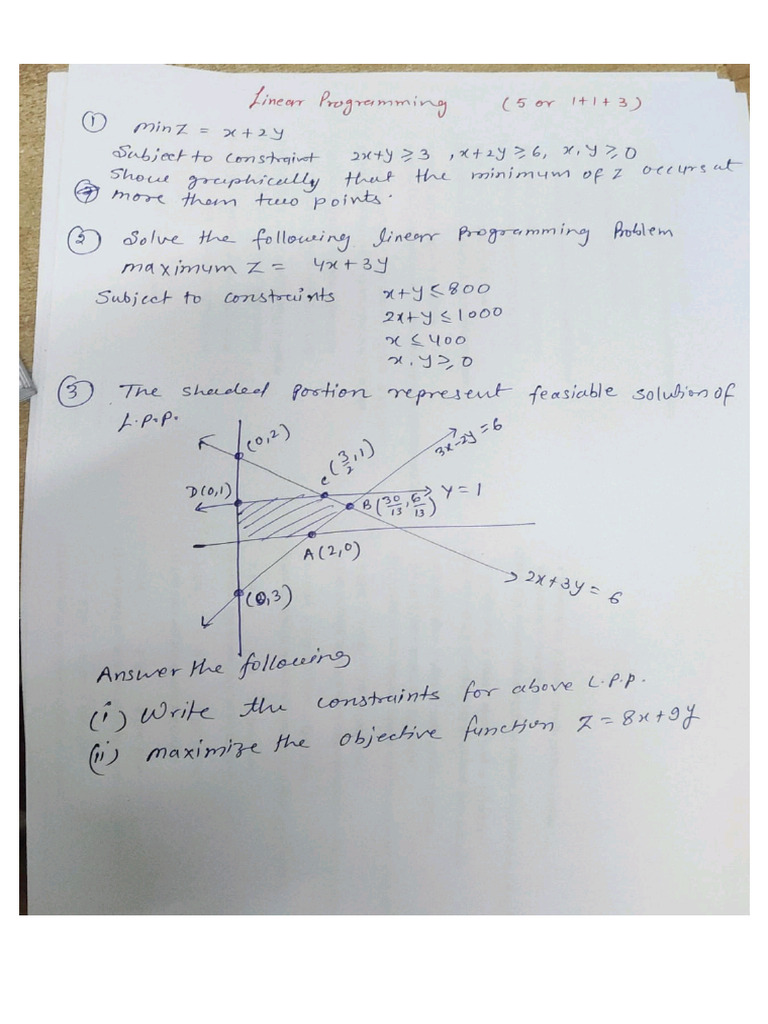 Linear Programming (5 or 1+1+3)
① min Z = x+2y
Subject to constraint 2x+y ≥ 3 , x+2y ≥ 6, x, y ≥ 0
Show graphically that the minimum of Z occurs at
more them two points.
② Solve the following linear Programming Problem
maximum Z = 4x+3y
Subject to constraints x+y ≤ 800
2x+y ≤ 1000
x ≤ 400
x, y ≥ 0
③ The shaded Portion represent feasiable solution of
L.P.P.
(0,2)
C (3/2, 1)
3x-2y=6
D(0,1)
B (30/13, 6/13)
y = 1
A(2,0)
(0,3)
2x+3y=6
Answer the following
(i) Write the constraints for above L.P.P.
(ii) maximize the objective function Z = 8x+9y